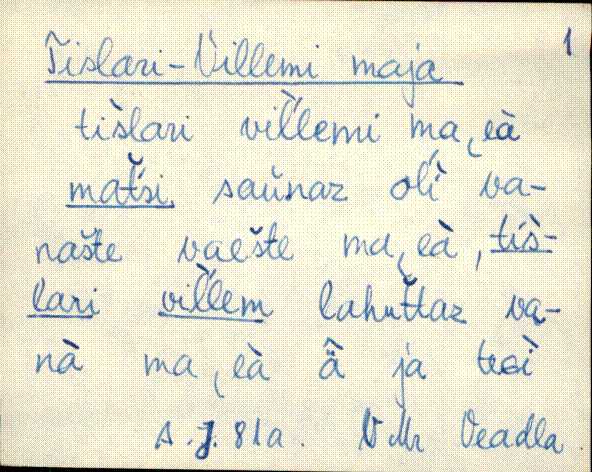 Tislari-Villemi maja 1
tìslari vil̆lemi ma,eà
mat̆śi saŭnaz olì va-
našte vaešte ma,eà, tìs-
lari vil̆lem lahut̆taz va-
nà ma,eà ä̂ ja tɛoì
A. J. 81a. VMr Veadla